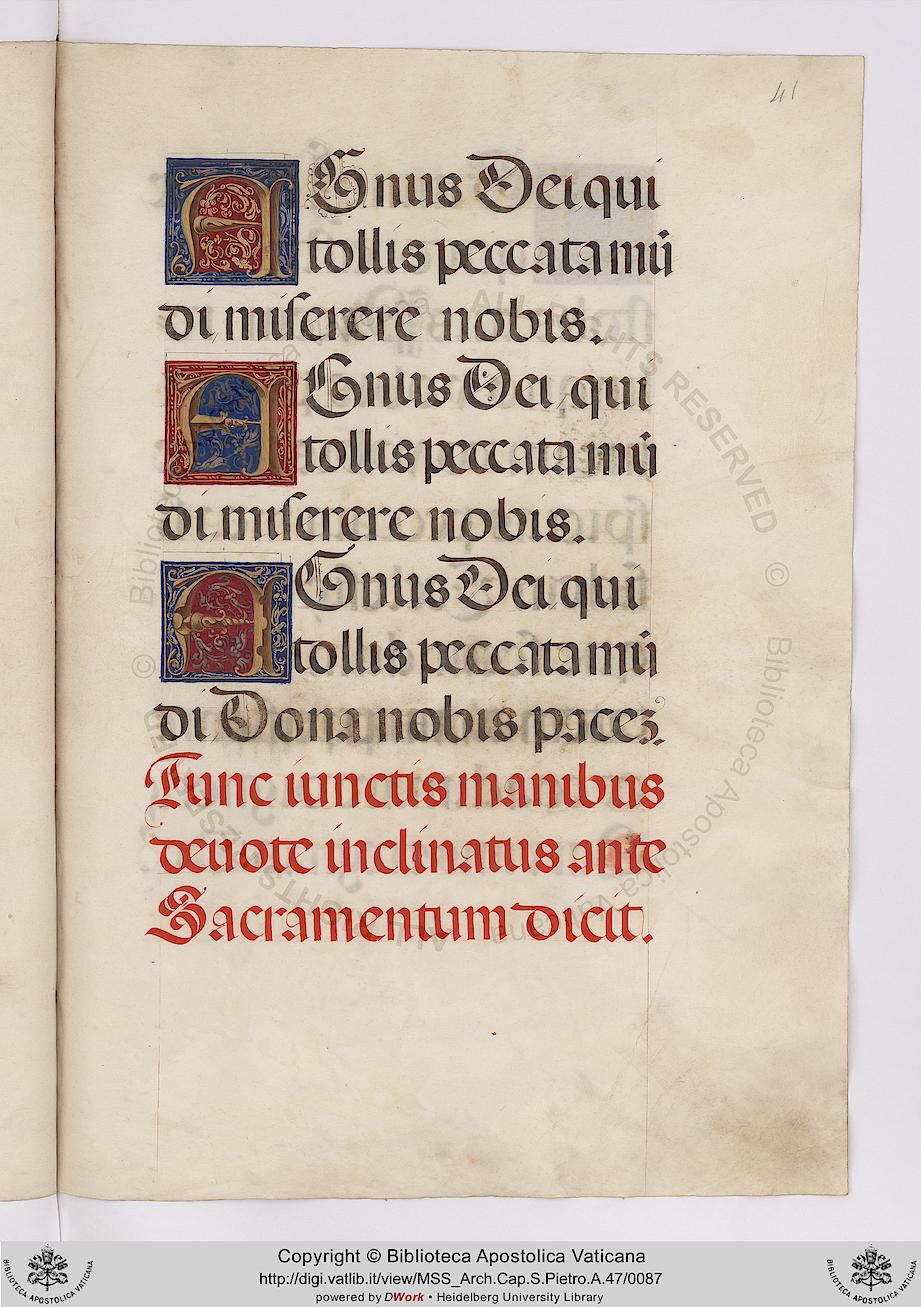 41
AGnus Dei qui
tollis peccata mū
di miserere nobis.
AGnus Dei qui
tollis peccata mū
di miserere nobis.
AGnus Dei qui
tollis peccata mū
di Dona nobis paceʒ.
Tunc iunctis manibus
deuote inclinatus ante
Sacramentum dicit.
Copyright © Biblioteca Apostolica Vaticana
http://digi.vatlib.it/view/MSS_Arch.Cap.S.Pietro.A.47/0087
powered by DWork • Heidelberg University Library
BIBLIOTECA APOSTOLICA VATICANA
BIBLIOTECA APOSTOLICA VATICANA
© Biblioteca Apostolica Vaticana ALL RIGHTS RESERVED
© Biblioteca Apostolica Vaticana ALL RIGHTS RESERVED